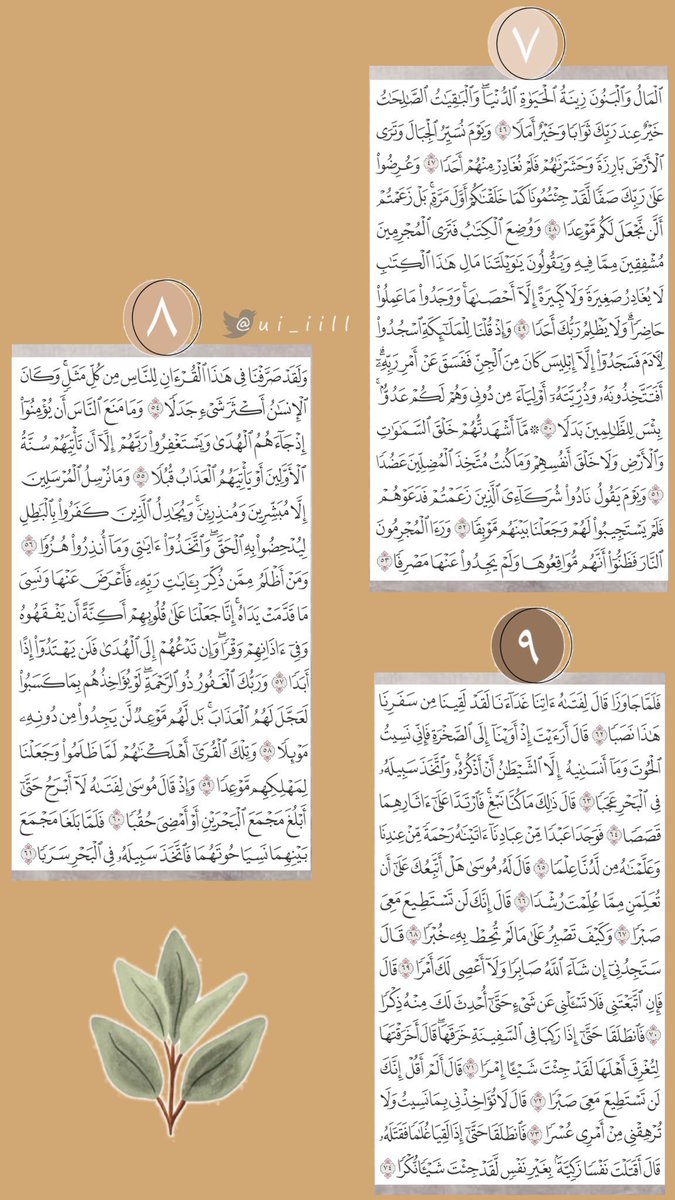 ٧
ٱلۡمَالُ وَٱلۡبَنُونَ زِينَةُ ٱلۡحَيَوٰةِ ٱلدُّنۡيَاۖ وَٱلۡبَٰقِيَٰتُ ٱلصَّٰلِحَٰتُ
خَيۡرٌ عِندَ رَبِّكَ ثَوَابٗا وَخَيۡرٌ أَمَلٗا ٤٦ وَيَوۡمَ نُسَيِّرُ ٱلۡجِبَالَ وَتَرَى
ٱلۡأَرۡضَ بَارِزَةٗ وَحَشَرۡنَٰهُمۡ فَلَمۡ نُغَادِرۡ مِنۡهُمۡ أَحَدٗا ٤٧ وَعُرِضُواْ
عَلَىٰ رَبِّكَ صَفّٗا لَّقَدۡ جِئۡتُمُونَا كَمَا خَلَقۡنَٰكُمۡ أَوَّلَ مَرَّةِۭۚ بَلۡ زَعَمۡتُمۡ
أَلَّن نَّجۡعَلَ لَكُم مَّوۡعِدٗا ٤٨ وَوُضِعَ ٱلۡكِتَٰبُ فَتَرَى ٱلۡمُجۡرِمِينَ
مُشۡفِقِينَ مِمَّا فِيهِ وَيَقُولُونَ يَٰوَيۡلَتَنَا مَالِ هَٰذَا ٱلۡكِتَٰبِ
لَا يُغَادِرُ صَغِيرَةٗ وَلَا كَبِيرَةً إِلَّآ أَحۡصَىٰهَاۚ وَوَجَدُواْ مَا عَمِلُواْ
حَاضِرٗاۗ وَلَا يَظۡلِمُ رَبُّكَ أَحَدٗا ٤٩ وَإِذۡ قُلۡنَا لِلۡمَلَٰٓئِكَةِ ٱسۡجُدُواْ
لِأٓدَمَ فَسَجَدُوٓاْ إِلَّآ إِبۡلِيسَ كَانَ مِنَ ٱلۡجِنِّ فَفَسَقَ عَنۡ أَمۡرِ رَبِّهِۦٓۗ
أَفَتَتَّخِذُونَهُۥ وَذُرِّيَّتَهُۥٓ أَوۡلِيَآءَ مِن دُونِي وَهُمۡ لَكُمۡ عَدُوُّۢۚ
بِئۡسَ لِلظَّٰلِمِينَ بَدَلٗا ٥٠ ۞ مَّآ أَشۡهَدتُّهُمۡ خَلۡقَ ٱلسَّمَٰوَٰتِ
وَٱلۡأَرۡضِ وَلَا خَلۡقَ أَنفُسِهِمۡ وَمَا كُنتُ مُتَّخِذَ ٱلۡمُضِلِّينَ عَضُدٗا
٥١ وَيَوۡمَ يَقُولُ نَادُواْ شُرَكَآءِيَ ٱلَّذِينَ زَعَمۡتُمۡ فَدَعَوۡهُمۡ
فَلَمۡ يَسۡتَجِيبُواْ لَهُمۡ وَجَعَلۡنَا بَيۡنَهُم مَّوۡبِقٗا ٥٢ وَرَءَا ٱلۡمُجۡرِمُونَ
ٱلنَّارَ فَظَنُّوٓاْ أَنَّهُم مُّوَاقِعُوهَا وَلَمۡ يَجِدُواْ عَنۡهَا مَصۡرِفٗا ٥٣
٨
@ui_iill
وَلَقَدۡ صَرَّفۡنَا فِي هَٰذَا ٱلۡقُرۡءَانِ لِلنَّاسِ مِن كُلِّ مَثَلٖۚ وَكَانَ
ٱلۡإِنسَٰنُ أَكۡثَرَ شَيۡءٖ جَدَلٗا ٥٤ وَمَا مَنَعَ ٱلنَّاسَ أَن يُؤۡمِنُوٓاْ
إِذۡ جَآءَهُمُ ٱلۡهُدَىٰ وَيَسۡتَغۡفِرُواْ رَبَّهُمۡ إِلَّآ أَن تَأۡتِيَهُمۡ سُنَّةُ
ٱلۡأَوَّلِينَ أَوۡ يَأۡتِيَهُمُ ٱلۡعَذَابُ قُبُلٗا ٥٥ وَمَا نُرۡسِلُ ٱلۡمُرۡسَلِينَ
إِلَّا مُبَشِّرِينَ وَمُنذِرِينَۚ وَيُجَٰدِلُ ٱلَّذِينَ كَفَرُواْ بِٱلۡبَٰطِلِ
لِيُدۡحِضُواْ بِهِ ٱلۡحَقَّۖ وَٱتَّخَذُوٓاْ ءَايَٰتِي وَمَآ أُنذِرُواْ هُزُوٗا ٥٦
وَمَنۡ أَظۡلَمُ مِمَّن ذُكِّرَ بِـَٔايَٰتِ رَبِّهِۦ فَأَعۡرَضَ عَنۡهَا وَنَسِيَ
مَا قَدَّمَتۡ يَدَاهُۚ إِنَّا جَعَلۡنَا عَلَىٰ قُلُوبِهِمۡ أَكِنَّةً أَن يَفۡقَهُوهُ
وَفِيٓ ءَاذَانِهِمۡ وَقۡرٗاۖ وَإِن تَدۡعُهُمۡ إِلَى ٱلۡهُدَىٰ فَلَن يَهۡتَدُوٓاْ إِذًا
أَبَدٗا ٥٧ وَرَبُّكَ ٱلۡغَفُورُ ذُو ٱلرَّحۡمَةِۖ لَوۡ يُؤَاخِذُهُم بِمَا كَسَبُواْ
لَعَجَّلَ لَهُمُ ٱلۡعَذَابَۚ بَل لَّهُم مَّوۡعِدٞ لَّن يَجِدُواْ مِن دُونِهِۦ
مَوۡئِلٗا ٥٨ وَتِلۡكَ ٱلۡقُرَىٰٓ أَهۡلَكۡنَٰهُمۡ لَمَّا ظَلَمُواْ وَجَعَلۡنَا
لِمَهۡلِكِهِم مَّوۡعِدٗا ٥٩ وَإِذۡ قَالَ مُوسَىٰ لِفَتَىٰهُ لَآ أَبۡرَحُ حَتَّىٰٓ
أَبۡلُغَ مَجۡمَعَ ٱلۡبَحۡرَيۡنِ أَوۡ أَمۡضِيَ حُقُبٗا ٦٠ فَلَمَّا بَلَغَا مَجۡمَعَ
بَيۡنِهِمَا نَسِيَا حُوتَهُمَا فَٱتَّخَذَ سَبِيلَهُۥ فِي ٱلۡبَحۡرِ سَرَبٗا ٦١
٩
فَلَمَّا جَاوَزَا قَالَ لِفَتَىٰهُ ءَاتِنَا غَدَآءَنَا لَقَدۡ لَقِينَا مِن سَفَرِنَا
هَٰذَا نَصَبٗا ٦٢ قَالَ أَرَءَيۡتَ إِذۡ أَوَيۡنَآ إِلَى ٱلصَّخۡرَةِ فَإِنِّي نَسِيتُ
ٱلۡحُوتَ وَمَآ أَنسَىٰنِيهُ إِلَّا ٱلشَّيۡطَٰنُ أَنۡ أَذۡكُرَهُۥۚ وَٱتَّخَذَ سَبِيلَهُۥ
فِي ٱلۡبَحۡرِ عَجَبٗا ٦٣ قَالَ ذَٰلِكَ مَا كُنَّا نَبۡغِۚ فَٱرۡتَدَّا عَلَىٰٓ ءَاثَارِهِمَا
قَصَصٗا ٦٤ فَوَجَدَا عَبۡدٗا مِّنۡ عِبَادِنَآ ءَاتَيۡنَٰهُ رَحۡمَةٗ مِّنۡ عِندِنَا
وَعَلَّمۡنَٰهُ مِن لَّدُنَّا عِلۡمٗا ٦٥ قَالَ لَهُۥ مُوسَىٰ هَلۡ أَتَّبِعُكَ عَلَىٰٓ أَن
تُعَلِّمَنِ مِمَّا عُلِّمۡتَ رُشۡدٗا ٦٦ قَالَ إِنَّكَ لَن تَسۡتَطِيعَ مَعِيَ
صَبۡرٗا ٦٧ وَكَيۡفَ تَصۡبِرُ عَلَىٰ مَا لَمۡ تُحِطۡ بِهِۦ خُبۡرٗا ٦٨ قَالَ
سَتَجِدُنِيٓ إِن شَآءَ ٱللَّهُ صَابِرٗا وَلَآ أَعۡصِي لَكَ أَمۡرٗا ٦٩ قَالَ
فَإِنِ ٱتَّبَعۡتَنِي فَلَا تَسۡـَٔلۡنِي عَن شَيۡءٍ حَتَّىٰٓ أُحۡدِثَ لَكَ مِنۡهُ ذِكۡرٗا
٧٠ فَٱنطَلَقَا حَتَّىٰٓ إِذَا رَكِبَا فِي ٱلسَّفِينَةِ خَرَقَهَاۖ قَالَ أَخَرَقۡتَهَا
لِتُغۡرِقَ أَهۡلَهَا لَقَدۡ جِئۡتَ شَيۡـًٔا إِمۡرٗا ٧١ قَالَ أَلَمۡ أَقُلۡ إِنَّكَ
لَن تَسۡتَطِيعَ مَعِيَ صَبۡرٗا ٧٢ قَالَ لَا تُؤَاخِذۡنِي بِمَا نَسِيتُ وَلَا
تُرۡهِقۡنِي مِنۡ أَمۡرِي عُسۡرٗا ٧٣ فَٱنطَلَقَا حَتَّىٰٓ إِذَا لَقِيَا غُلَٰمٗا فَقَتَلَهُۥ
قَالَ أَقَتَلۡتَ نَفۡسٗا زَكِيَّةَۢ بِغَيۡرِ نَفۡسٖ لَّقَدۡ جِئۡتَ شَيۡـٔٗا نُّكۡرٗا ٧٤